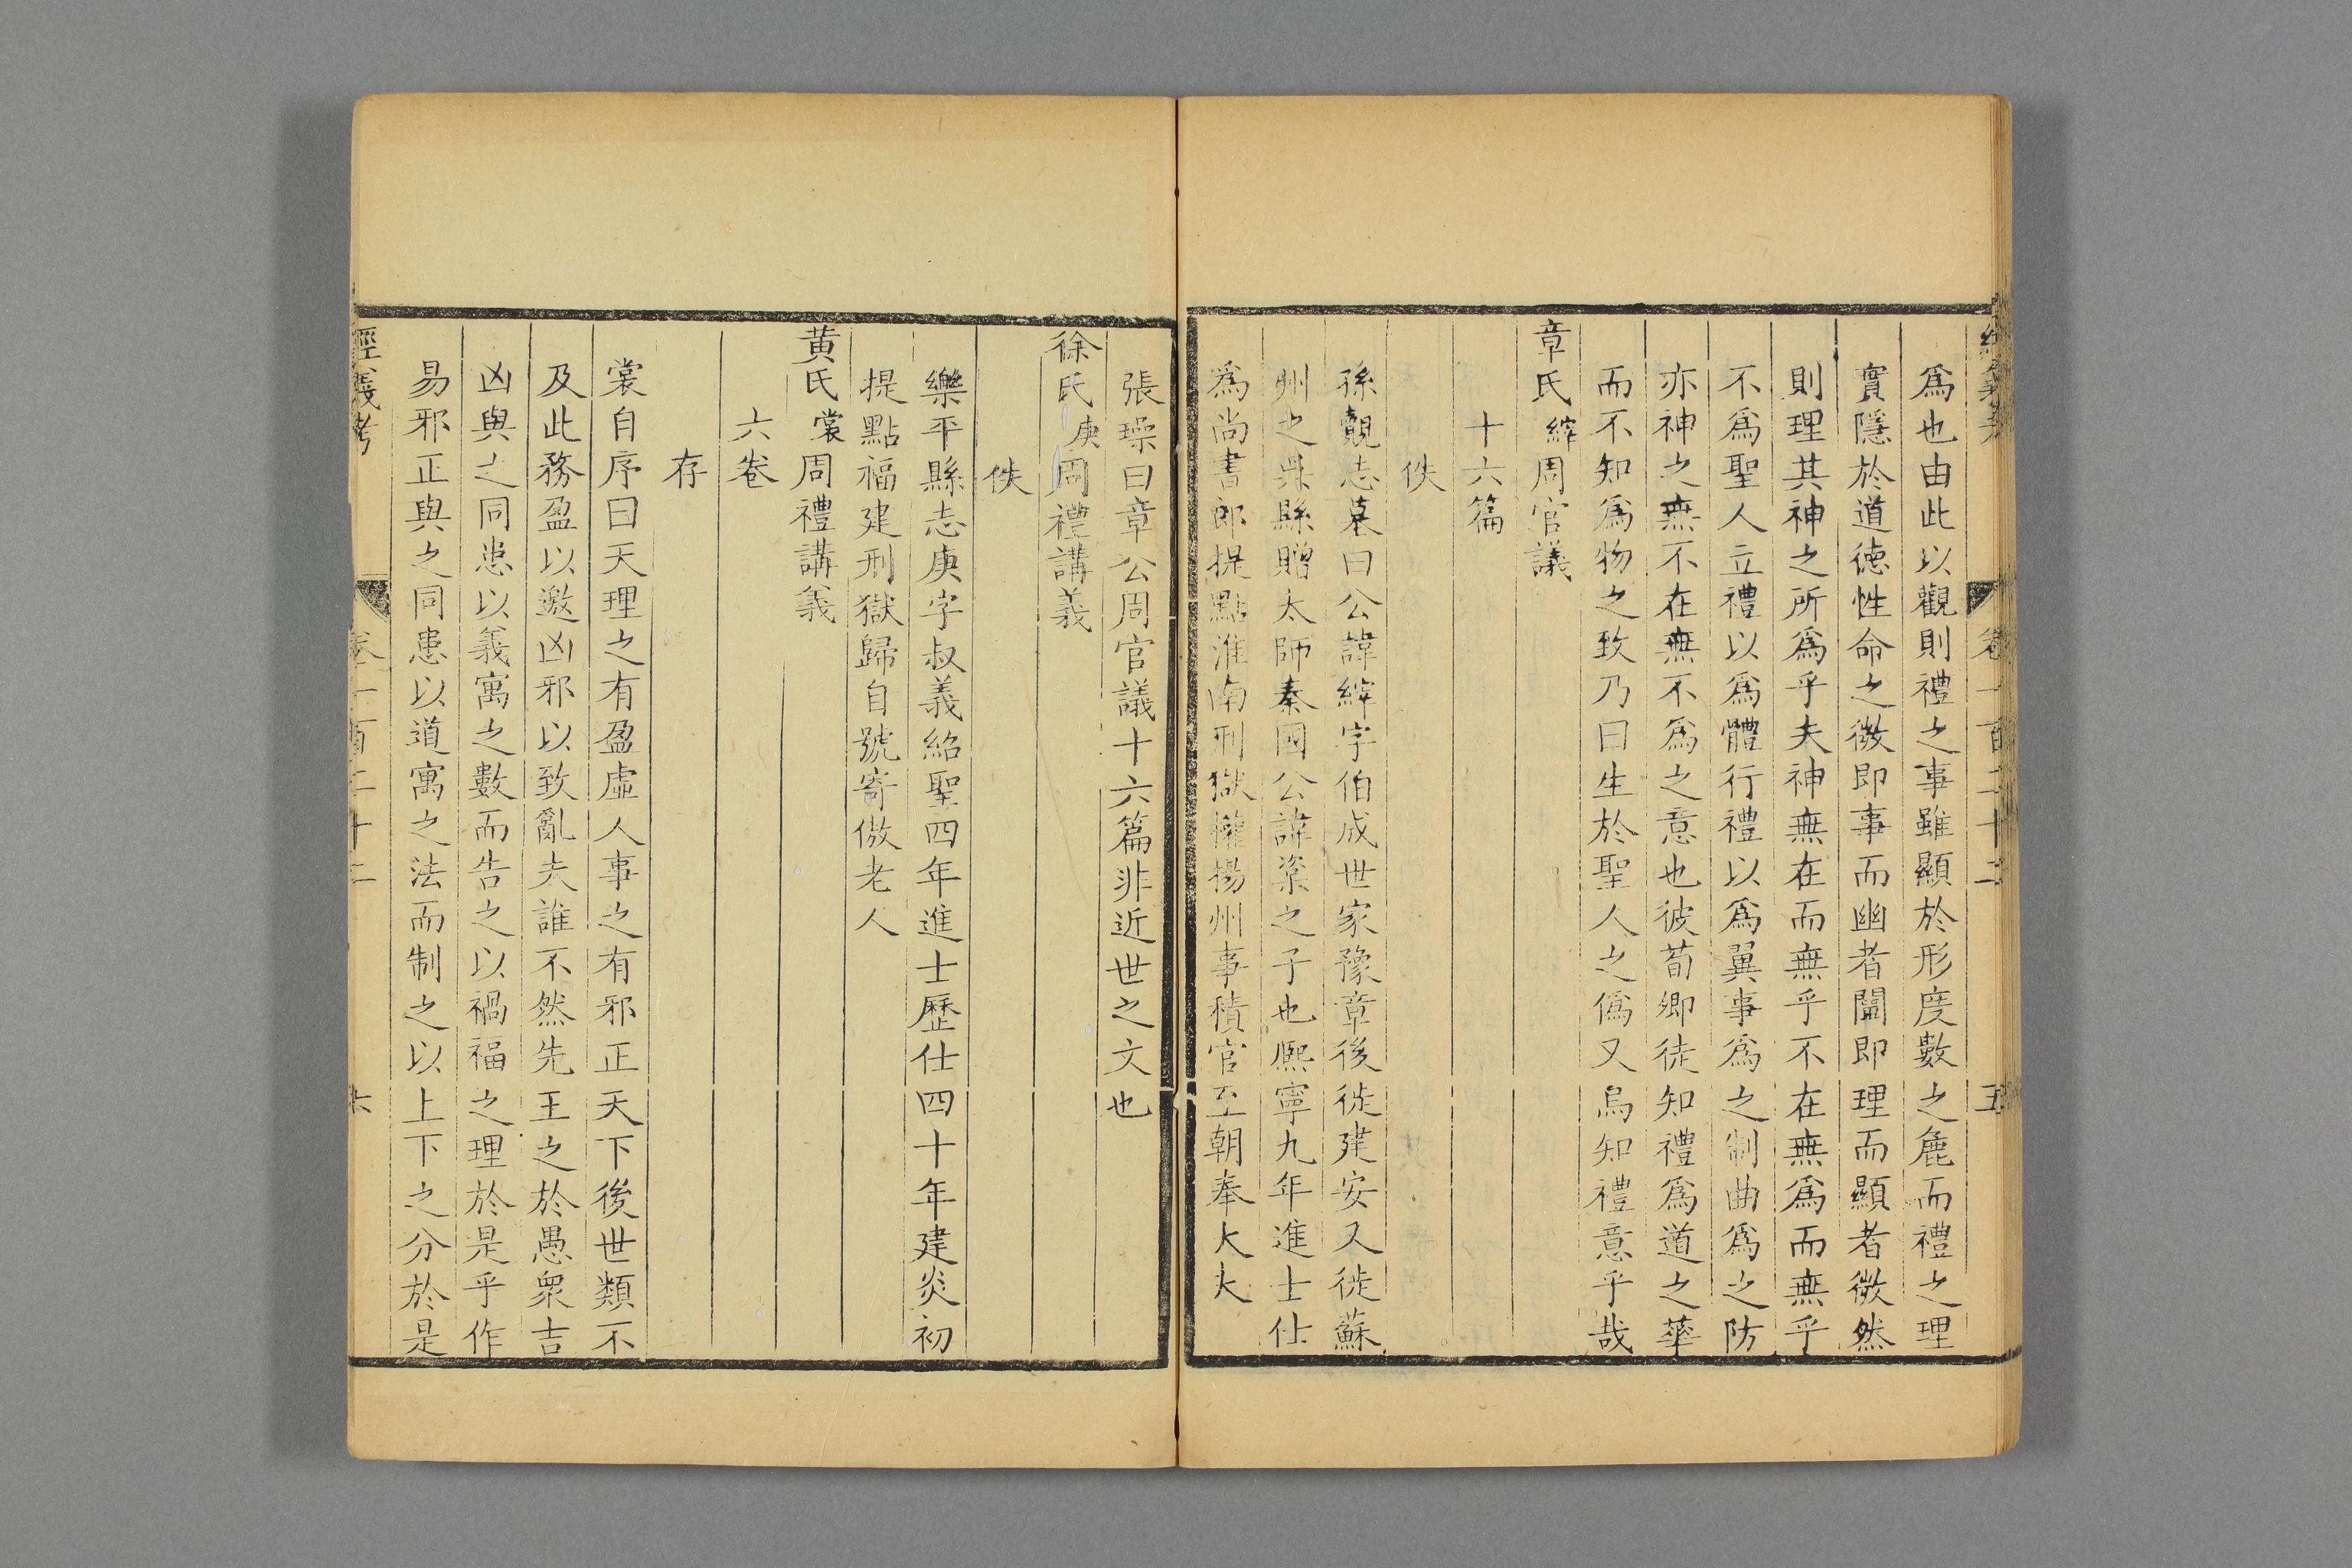 卷一百二十二
五
爲也由此以觀則禮之事雖顯於形度數之麁而禮之理
實隱於道德性命之微即事而幽者闡即理而顯者微然
則理其神之所爲乎夫神無在而無乎不在無爲而無乎
不爲聖人立禮以爲體行禮以爲翼事爲之制曲爲之防
亦神之無不在無不爲之意也彼荀卿徒知禮爲道之華
而不知爲物之致乃曰生於聖人之僞又烏知禮意乎哉
章氏綡周官議
十六篇
佚
孫覿志墓曰公諱綡字伯成世家豫章後徙建安又徙蘇
州之吳縣贈太師秦國公諱楶之子也熙寧九年進士仕
爲尚書郎提點淮南刑獄權揚州事積官至朝奉大夫
張璪曰章公周官議十六篇非近世之文也
徐氏庚周禮講義
佚
樂平縣志庚字叔義紹聖四年進士歷仕四十年建炎初
提點福建刑獄歸自號寄傲老人
黃氏裳周禮講義
六卷
存
裳自序曰天理之有盈虛人事之有邪正天下後世類不
及此務盈以邀凶邪以致亂夫誰不然先王之於愚衆吉
凶與之同患以義寓之數而告之以禍福之理於是乎作
易邪正與之同患以道寓之法而制之以上下之分於是
經義考
卷一百二十二
六